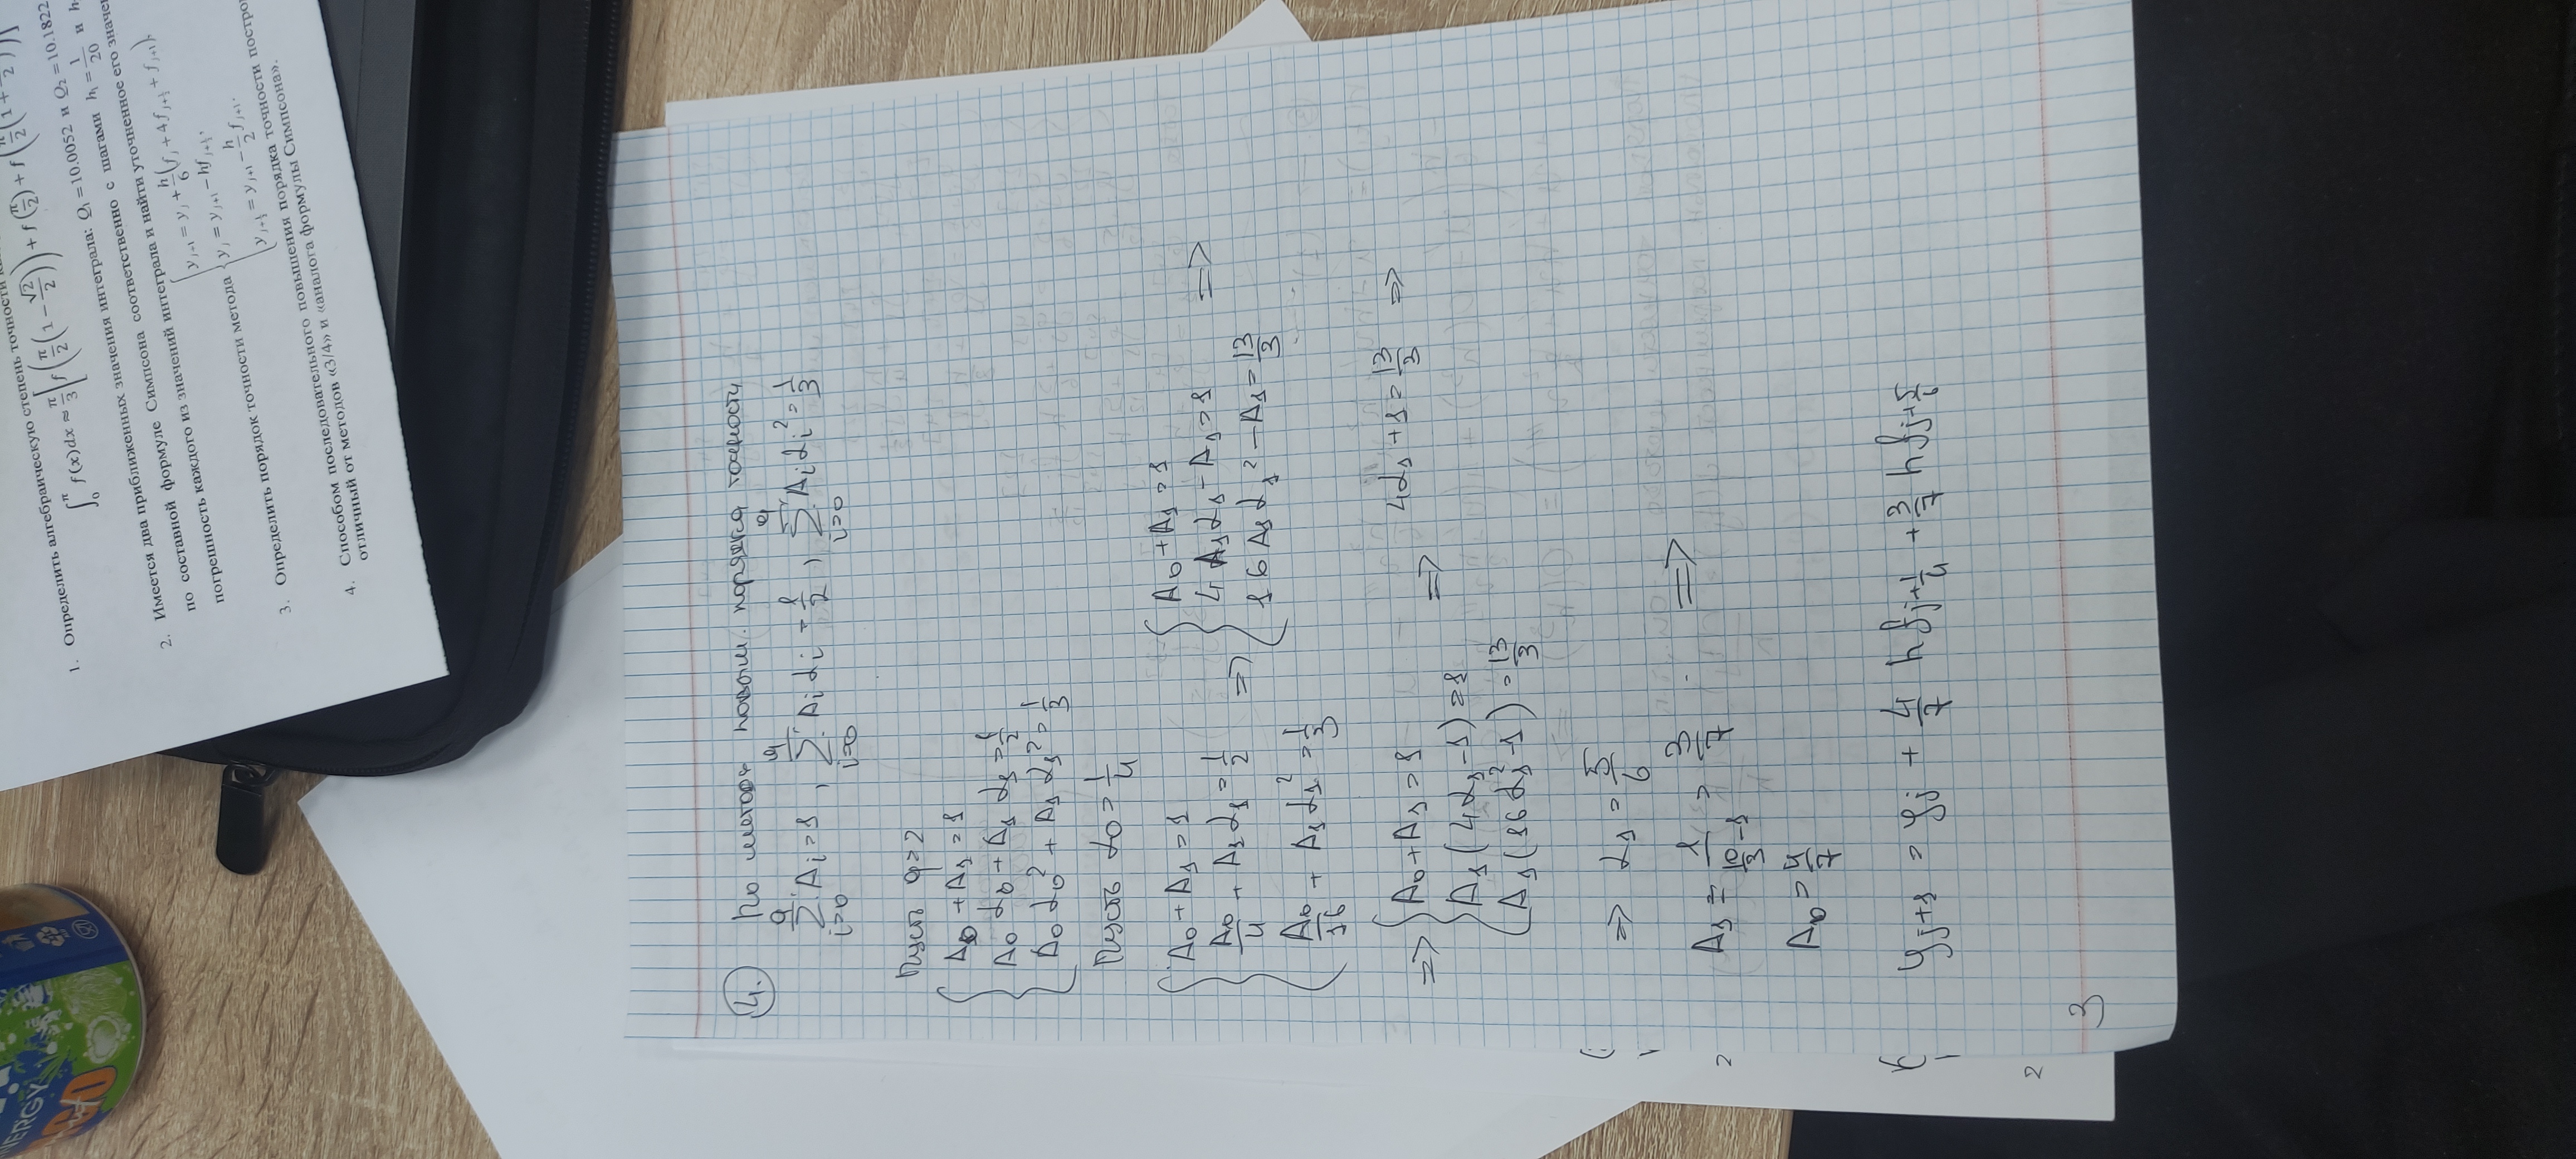 ENERGY
1. Определить алгебраическую степень точности
∫₀^π f(x)dx ≈ π/3 [f(π/2(1 − √2/2)) + f(π/2) + f(π/2(1 +
2. Имеется два приближенных значения интеграла: Q₁ = 10.0052 и Q₂ = 10.1822
по составной формуле Симпсона соответственно с шагами h₁ = 1/20 и h
погрешность каждого из значений интеграла и найти уточненное его значе
3. Определить порядок точности метода
{ y_{j+1} = y_j + h/6 (f_j + 4f_{j+1/2} + f_{j+1}),
y_j = y_{j+1} − hf_{j+1/2},
y_{j+1/2} = y_{j+1} − h/2 f_{j+1}.
4. Способом последовательного повышения порядка точности постро
отличный от методов «3/4» и «аналога формулы Симпсона».
4. По метода повыш. порядка точности
∑_{i=0}^{q} A_i = 1, ∑_{i=0}^{q} A_i α_i = 1/2, ∑_{i=0}^{q} A_i α_i² = 1/3
Пусть q=2
{ A₀ + A₁ = 1
A₀ α₀ + A₁ α₁ = 1/2
A₀ α₀² + A₁ α₁² = 1/3
Пусть α₀ = 1/4
{ A₀ + A₁ = 1
A₀/4 + A₁ α₁ = 1/2
A₀/16 + A₁ α₁² = 1/3
=> { A₀ + A₁ = 1
4 A₁ α₁ − A₁ = 1 =>
16 A₁ α₁² − A₁ = 13/3
=> { A₀ + A₁ = 1
A₁ (4α₁ − 1) = 1
A₁ (16 α₁² − 1) = 13/3
=> 4α₁ + 1 = 13/3 =>
=> α₁ = 5/6
A₁ = 1/(10/3 − 1) = 3/7 =>
A₀ = 4/7
y_{j+1} = y_j + 4/7 h f_{j+1/4} + 3/7 h f_{j+5/6}
2
2
3